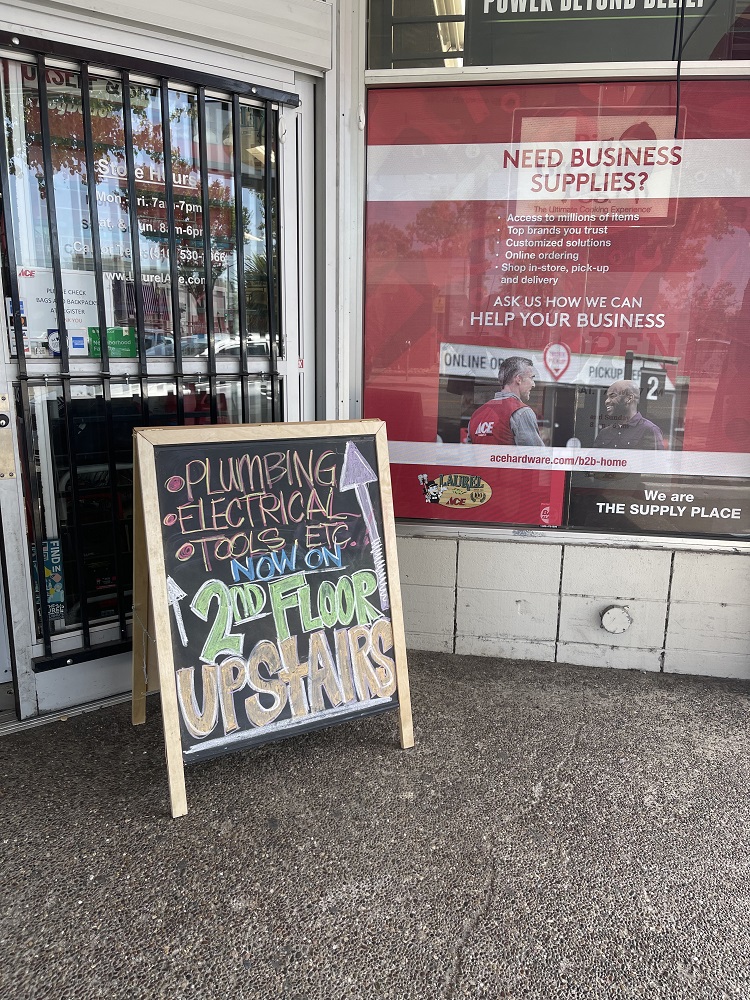 POWER BEYOND BELIEF
Store Hours
Mon.-Fri. 7am-7pm
Sat. & Sun. 8am-6pm
www.LaurelAce.com
ACE
PLEASE CHECK
BAGS AND BACKPACKS
AT REGISTER
THANK YOU
NEED BUSINESS
SUPPLIES?
The Ultimate Cooking Experience
· Access to millions of items
· Top brands you trust
· Customized solutions
· Online ordering
· Shop in-store, pick-up
and delivery
ASK US HOW WE CAN
HELP YOUR BUSINESS
OPEN
ONLINE OR
PICKUP
2
ACE
acehardware.com/b2b-home
LAUREL
ACE
We are
THE SUPPLY PLACE
• PLUMBING
• ELECTRICAL
• TOOLS ETC.
NOW ON
2ND FLOOR
UPSTAIRS
FIND IN